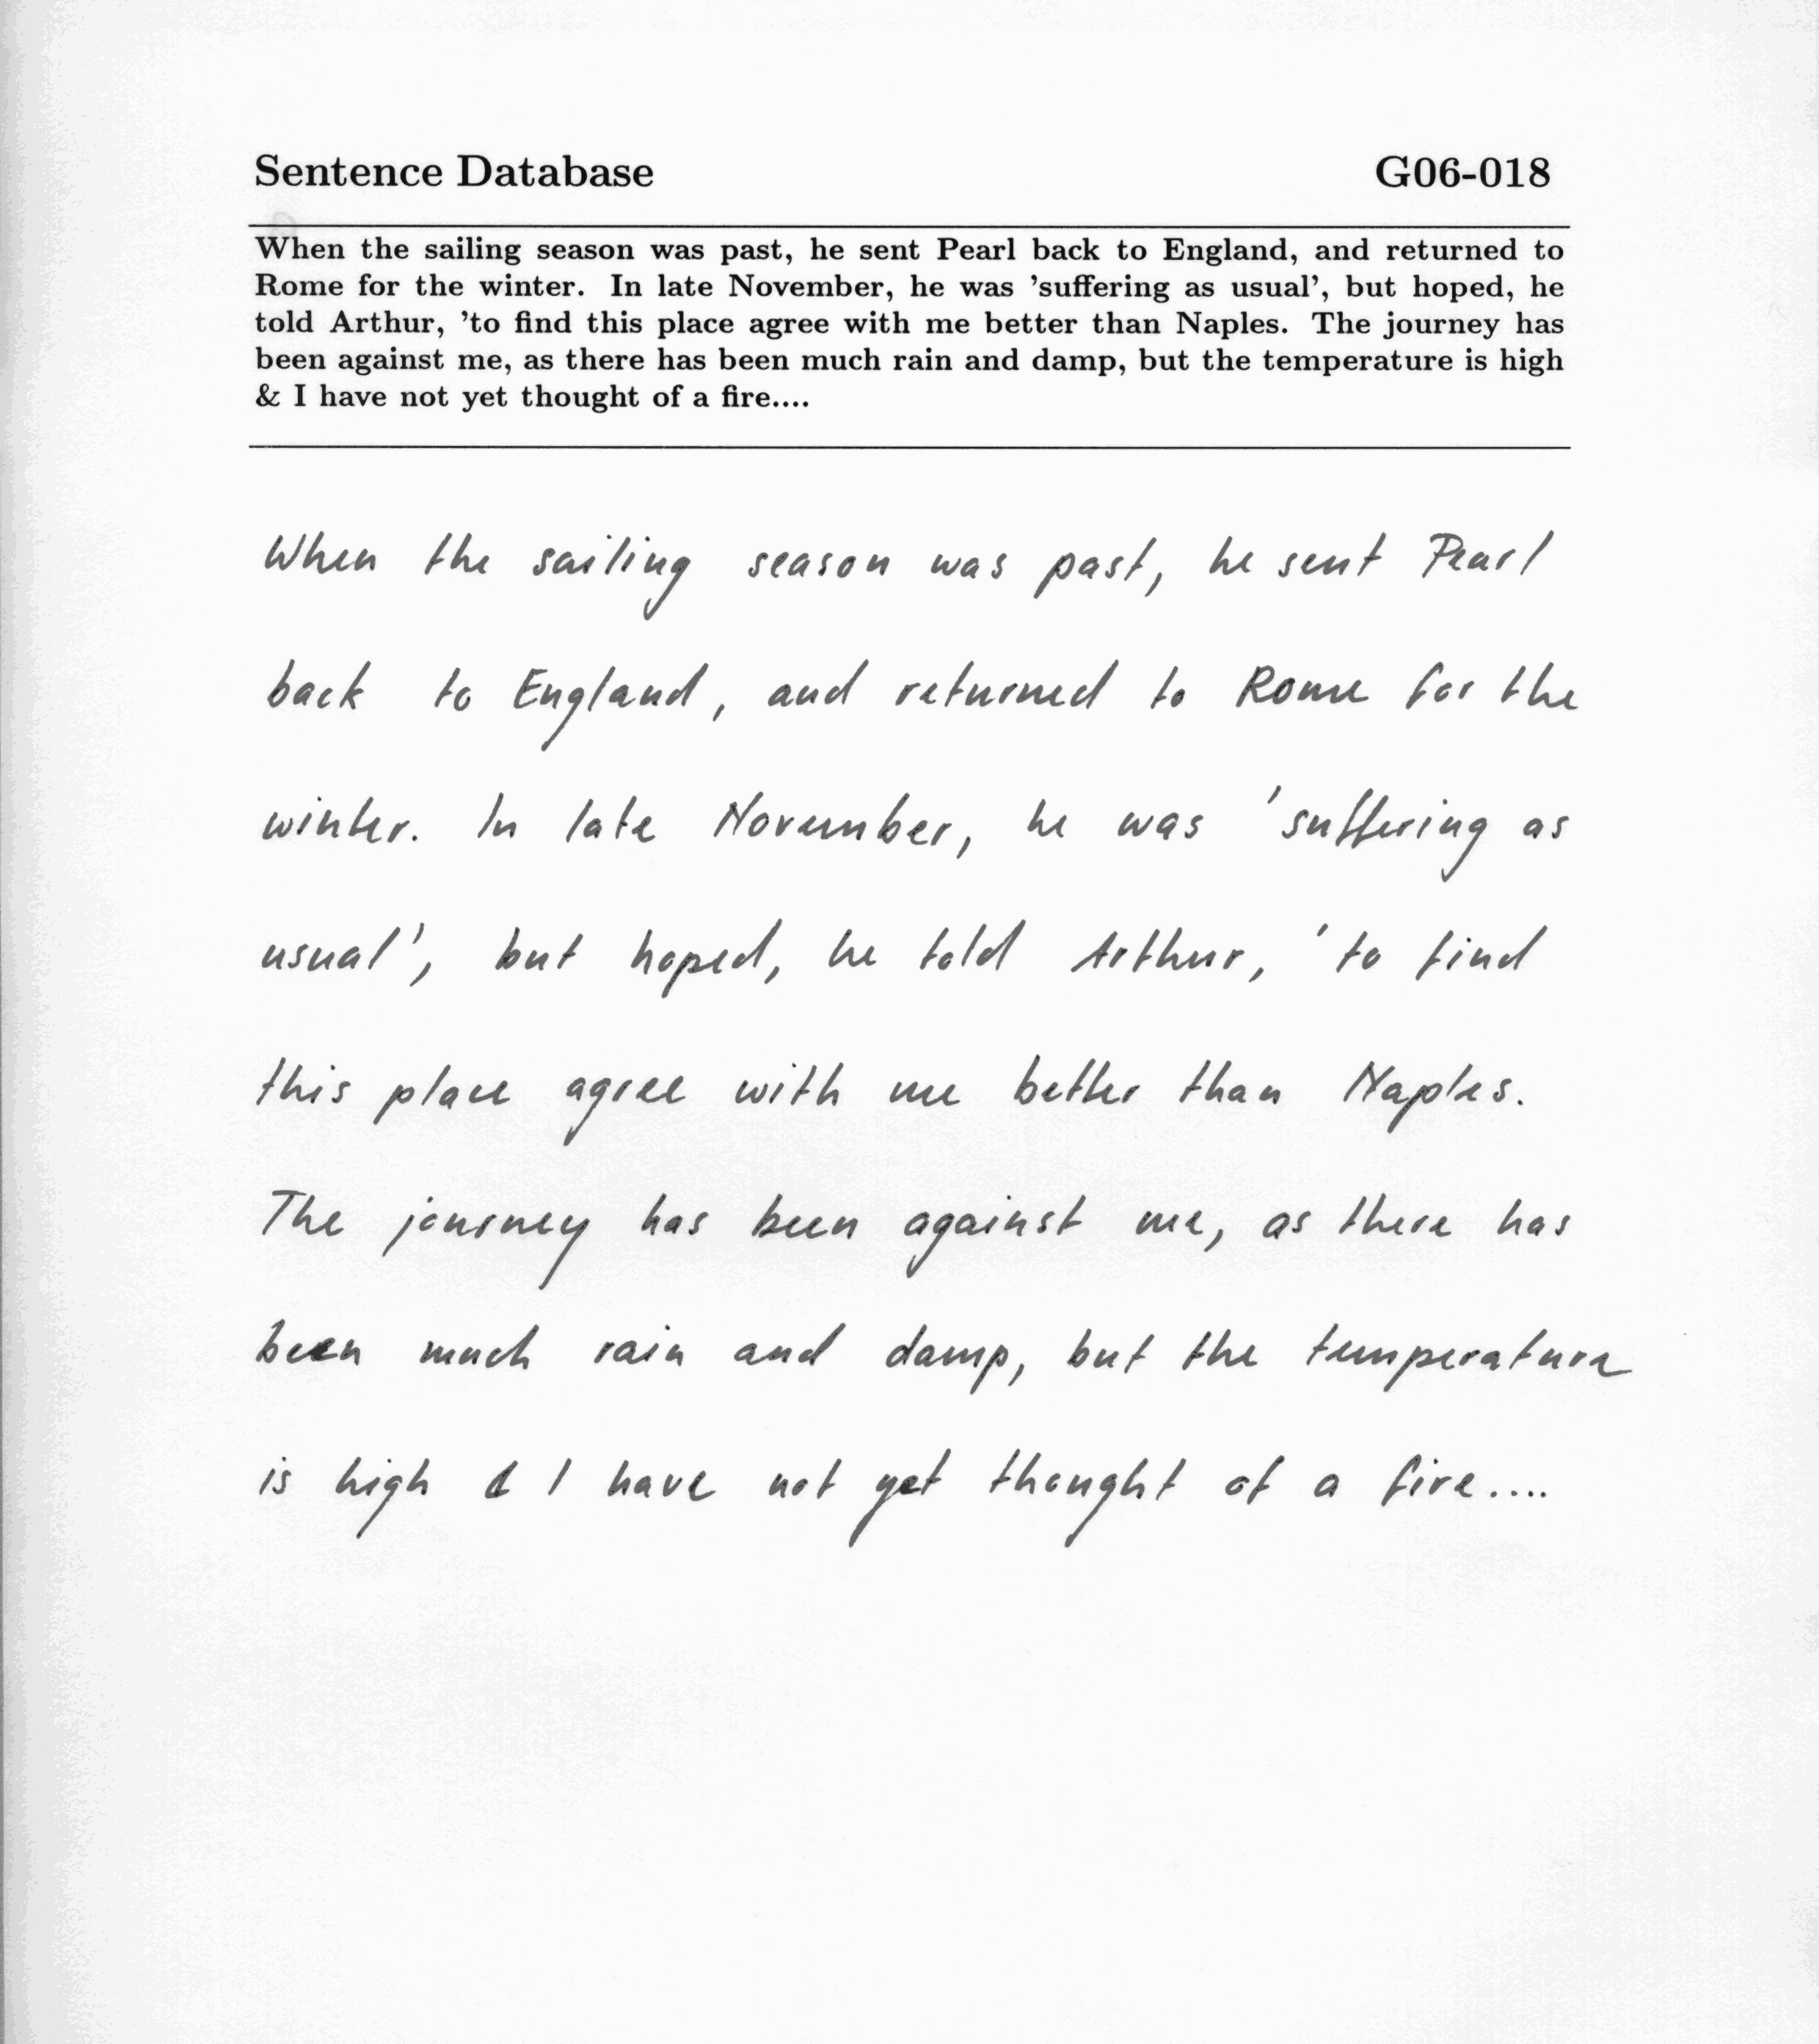 Sentence Database G06-018
When the sailing season was past, he sent Pearl back to England, and returned to
Rome for the winter. In late November, he was 'suffering as usual', but hoped, he
told Arthur, 'to find this place agree with me better than Naples. The journey has
been against me, as there has been much rain and damp, but the temperature is high
& I have not yet thought of a fire....
When the sailing season was past, he sent Pearl
back to England, and returned to Rome for the
winter. In late November, he was 'suffering as
usual', but hoped, he told Arthur, 'to find
this place agree with me better than Naples.
The journey has been against me, as there has
been much rain and damp, but the temperature
is high & I have not yet thought of a fire....